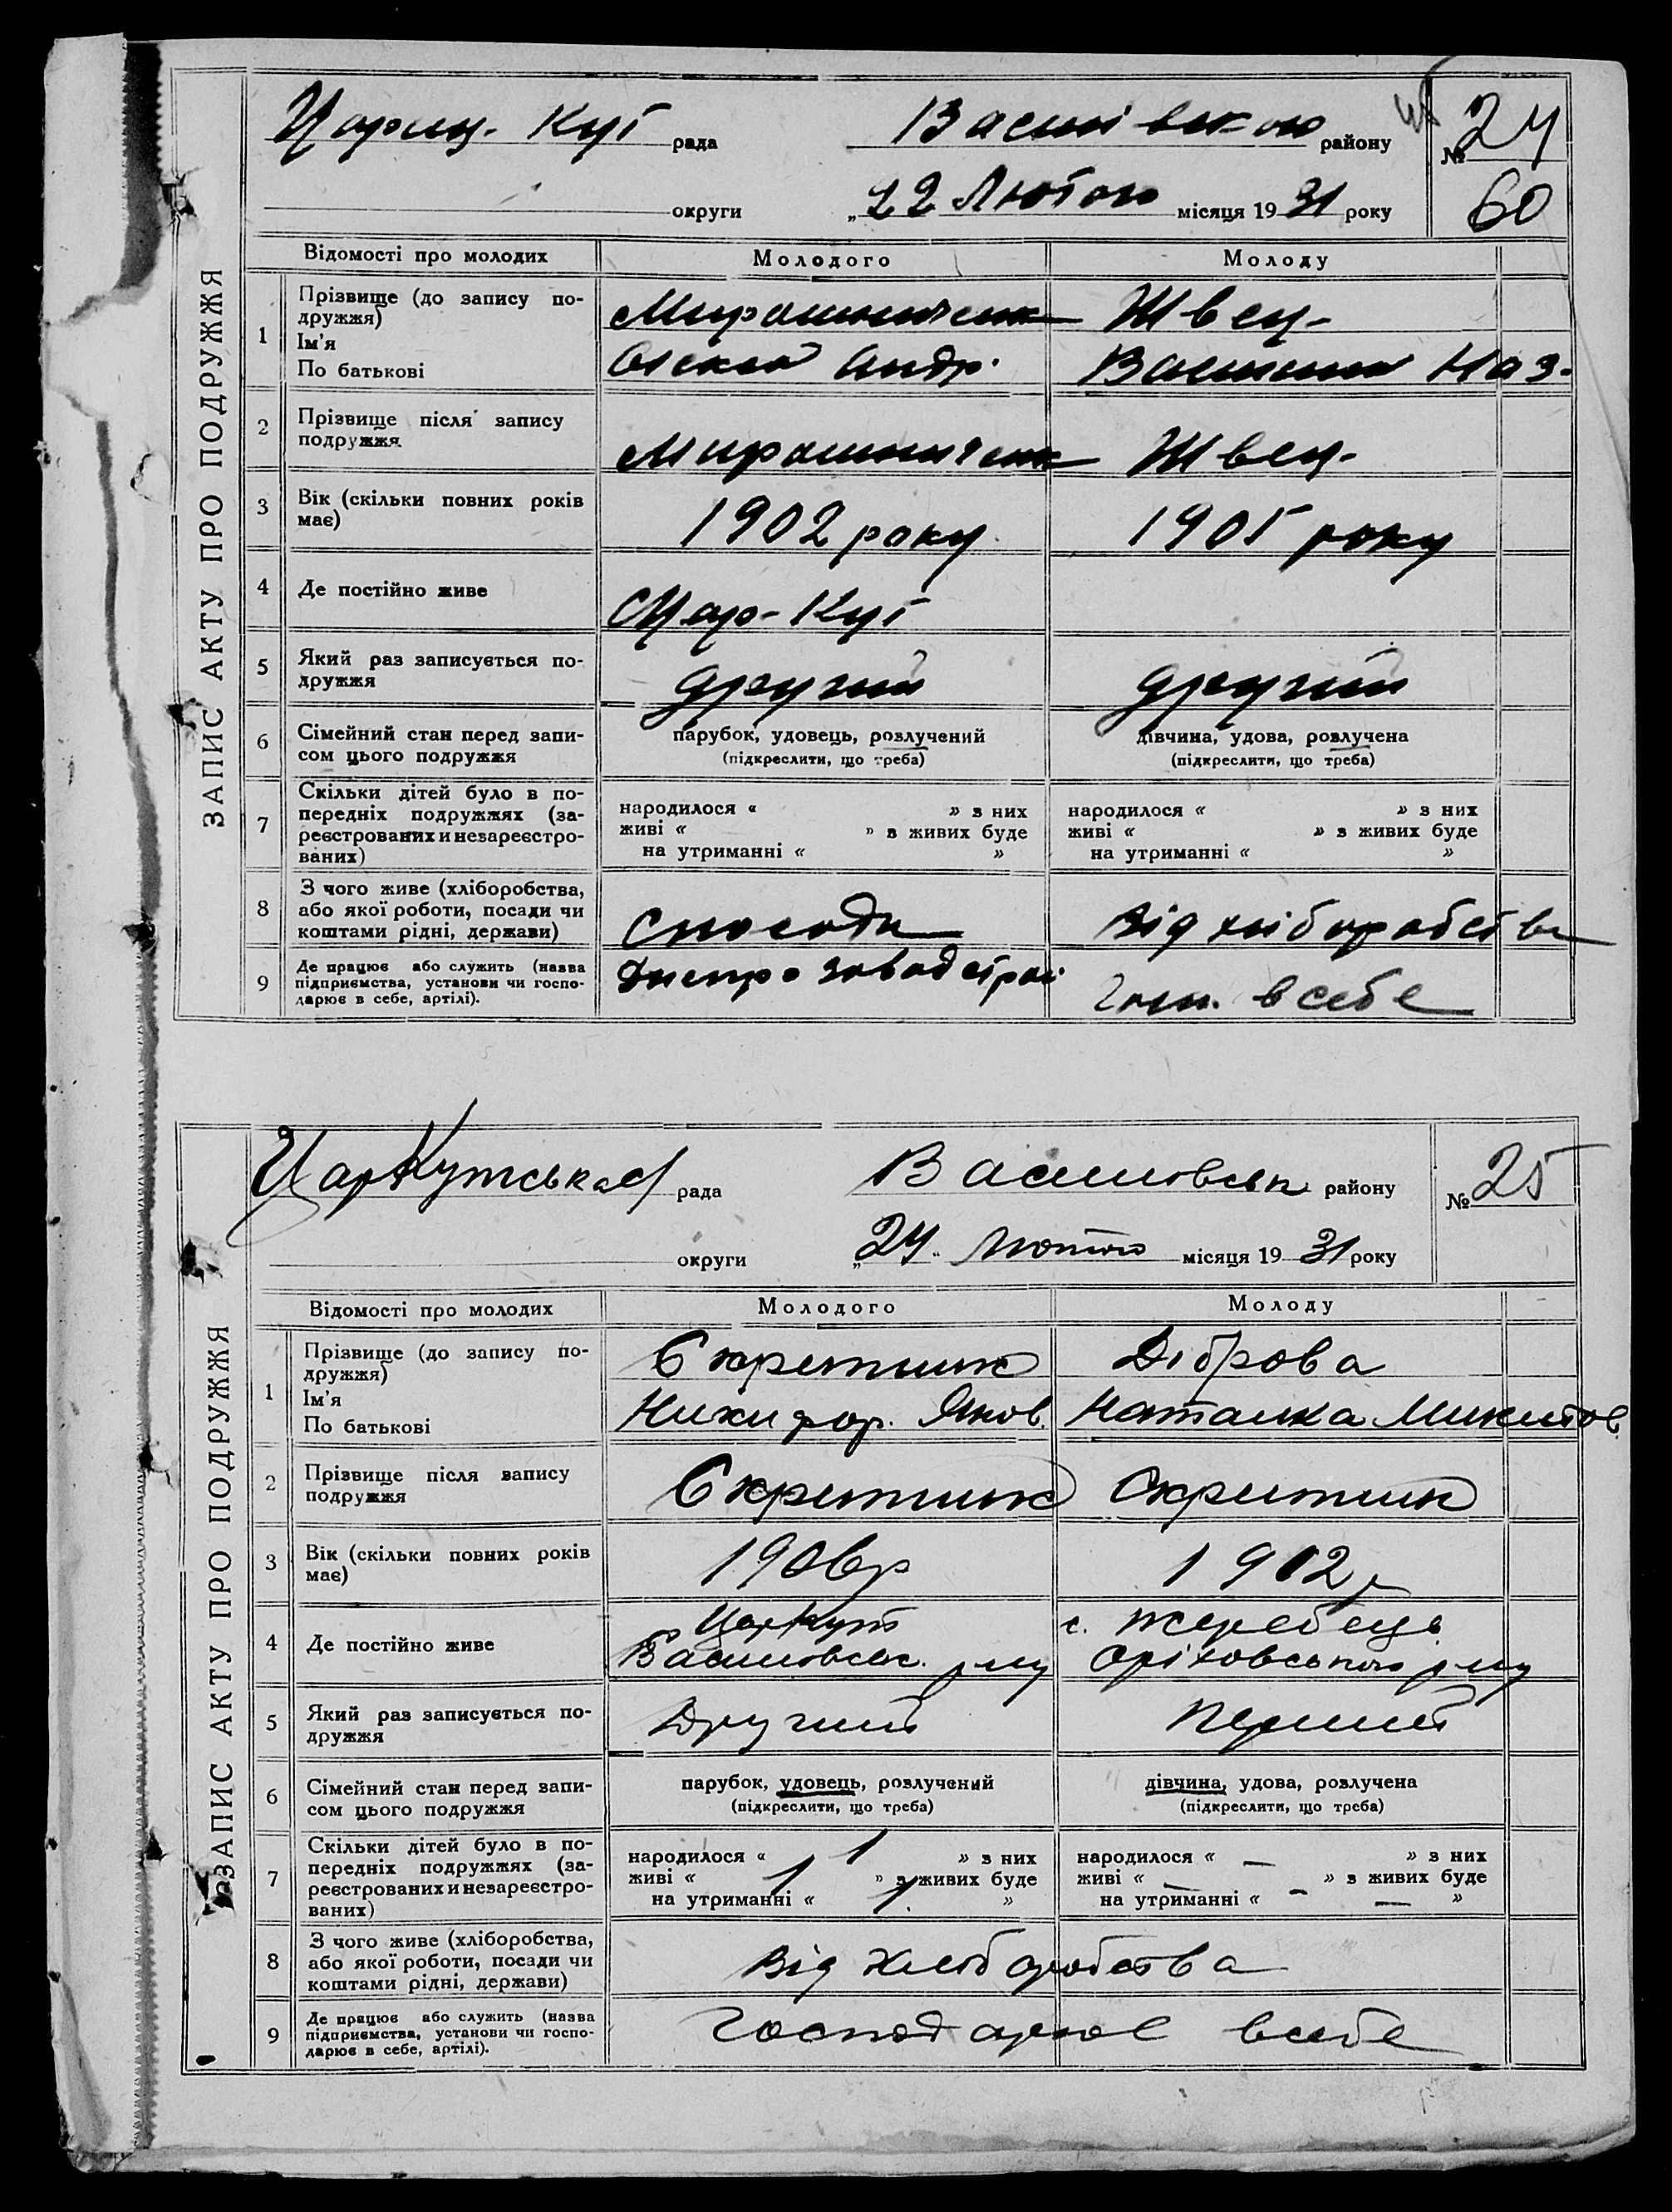 Цариц. Кут рада Василівського району № 24
округи „22 Лютого місяця 1931 року 60
ЗАПИС АКТУ ПРО ПОДРУЖЖЯ
Відомості про молодих Молодого Молоду
1 Прізвище (до запису по-
дружжя)
Ім’я
По батькові
Мирошниченк Швец-
Олексій Андр. Наз.
2 Прізвище після запису
подружжя
Мирошниченк Швец-
3 Вік (скільки повних років
має)
1902 року 1905 року
4 Де постійно живе
Цар-Кут
5 Який раз записується по-
дружжя
другий другий
6 Сімейний стан перед запи-
сом цього подружжя
парубок, удовець, розлучений дівчина, удова, розлучена
(підкреслити, що треба) (підкреслити, що треба)
7 Скільки дітей було в по-
передніх подружжях (за-
реєстрованих и незареєстро-
ваних)
народилося « » з них народилося « » з них
живі « » з живих буде живі « » з живих буде
на утриманні « » на утриманні « »
8 З чого живе (хліборобства,
або якої роботи, посади чи
коштами рідні, держави)
Спосади Від хліборобства
9 Де працює або служить (назва
підприємства, установи чи госпо-
дарює в себе, артілі).
Днепрозаводстрой Госп. в себе
ЦарКутська рада Василовськ району № 25
округи „24 лютого місяця 1931 року
ЗАПИС АКТУ ПРО ПОДРУЖЖЯ
Відомості про молодих Молодого Молоду
1 Прізвище (до запису по-
дружжя)
Ім’я
По батькові
Скрипник Діброва
Никифор. Яков. Наталка Микитов.
2 Прізвище після запису
подружжя
Скрипник Скрипник
3 Вік (скільки повних років
має)
1906р 1902р
4 Де постійно живе
ЦарКут с. Жеребець
Василовськ. р-ну Оріховського р-ну
5 Який раз записується по-
дружжя
Другий Перший
6 Сімейний стан перед запи-
сом цього подружжя
парубок, удовець, розлучений дівчина, удова, розлучена
(підкреслити, що треба) (підкреслити, що треба)
7 Скільки дітей було в по-
передніх подружжях (за-
реєстрованих и незареєстро-
ваних)
народилося « 1 » з них народилося « — » з них
живі « 1 » з живих буде живі « — » з живих буде
на утриманні « 1 » на утриманні « — — »
8 З чого живе (хліборобства,
або якої роботи, посади чи
коштами рідні, держави)
Від хліборобства
9 Де працює або служить (назва
підприємства, установи чи госпо-
дарює в себе, артілі).
Господарює всебе